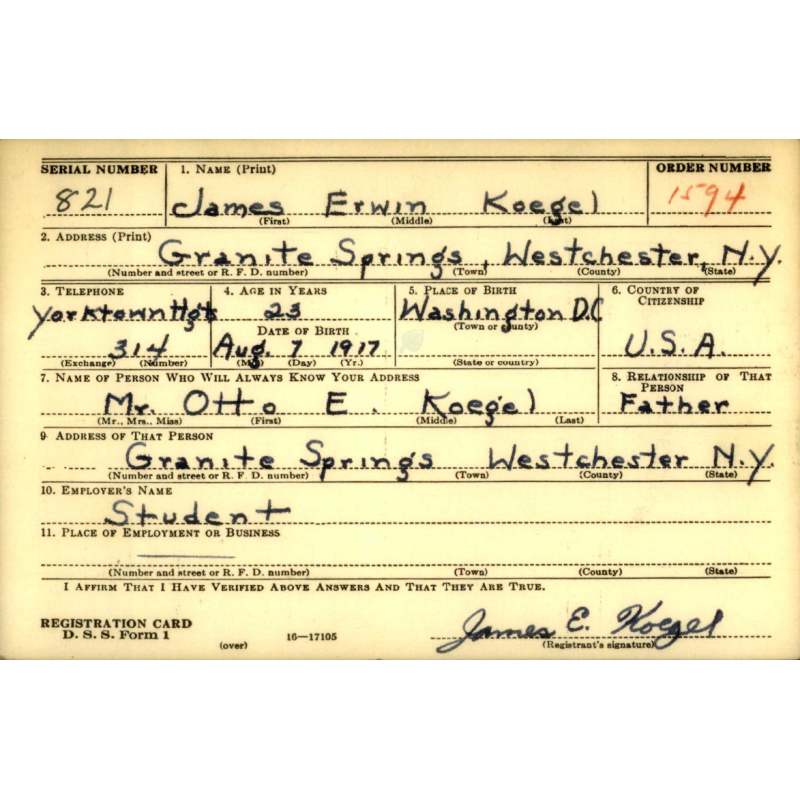 SERIAL NUMBER 1. NAME (Print) ORDER NUMBER
821 James Erwin Koegel 1594
(First) (Middle) (Last)
2. ADDRESS (Print)
Granite Springs, Westchester, N.Y.
(Number and street or R. F. D. number) (Town) (County) (State)
3. TELEPHONE 4. AGE IN YEARS 5. PLACE OF BIRTH 6. COUNTRY OF CITIZENSHIP
Yorktown Hgts 23 Washington D.C
(Town or county)
DATE OF BIRTH
314 Aug. 7 1917 U.S.A.
(Exchange) (Number) (Mo.) (Day) (Yr.) (State or country)
7. NAME OF PERSON WHO WILL ALWAYS KNOW YOUR ADDRESS 8. RELATIONSHIP OF THAT PERSON
Mr. Otto E. Koegel Father
(Mr., Mrs., Miss) (First) (Middle) (Last)
9. ADDRESS OF THAT PERSON
Granite Springs Westchester N.Y.
(Number and street or R. F. D. number) (Town) (County) (State)
10. EMPLOYER'S NAME
Student
11. PLACE OF EMPLOYMENT OR BUSINESS
(Number and street or R. F. D. number) (Town) (County) (State)
I AFFIRM THAT I HAVE VERIFIED ABOVE ANSWERS AND THAT THEY ARE TRUE.
REGISTRATION CARD
D. S. S. Form 1 16—17105 James E. Koegel
(over) (Registrant's signature)